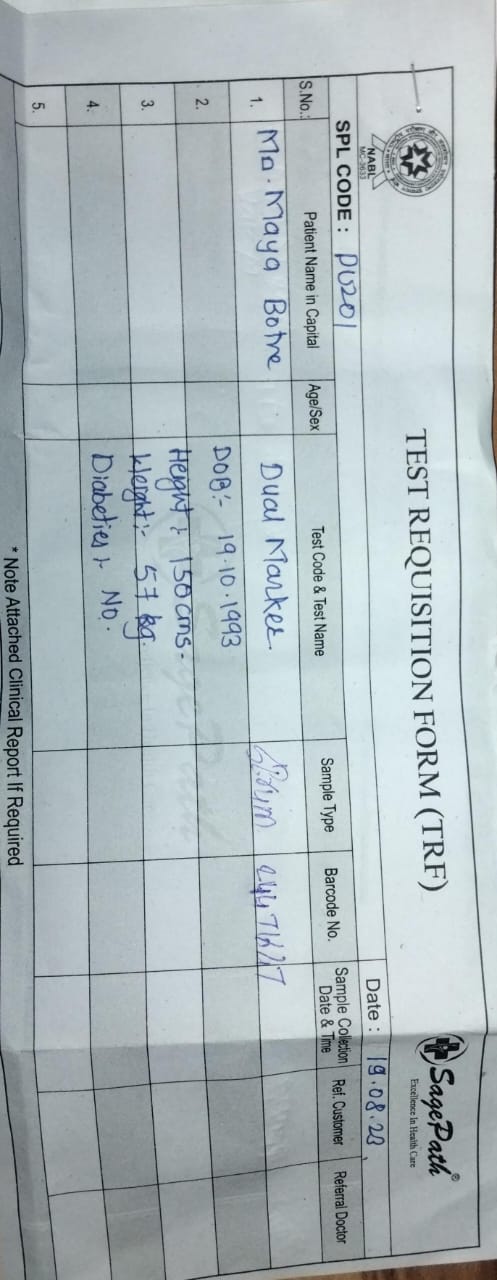 TEST REQUISITION FORM (TRF)
SagePath®
Excellence In Health Care
NABL
MC-3633
SPL CODE : PU201
Date : 19.08.23
S.No.: Patient Name in Capital Age/Sex Test Code & Test Name Sample Type Barcode No. Sample Collection Date & Time Ref. Customer Referral Doctor
1. Mo. Maya Botre Dual Marker Serum
DOB:- 19.10.1993
2.
Height :- 150 cms.
3. Weight :- 57 kg.
4. Diabeties :- No.
5.
* Note Attached Clinical Report If Required